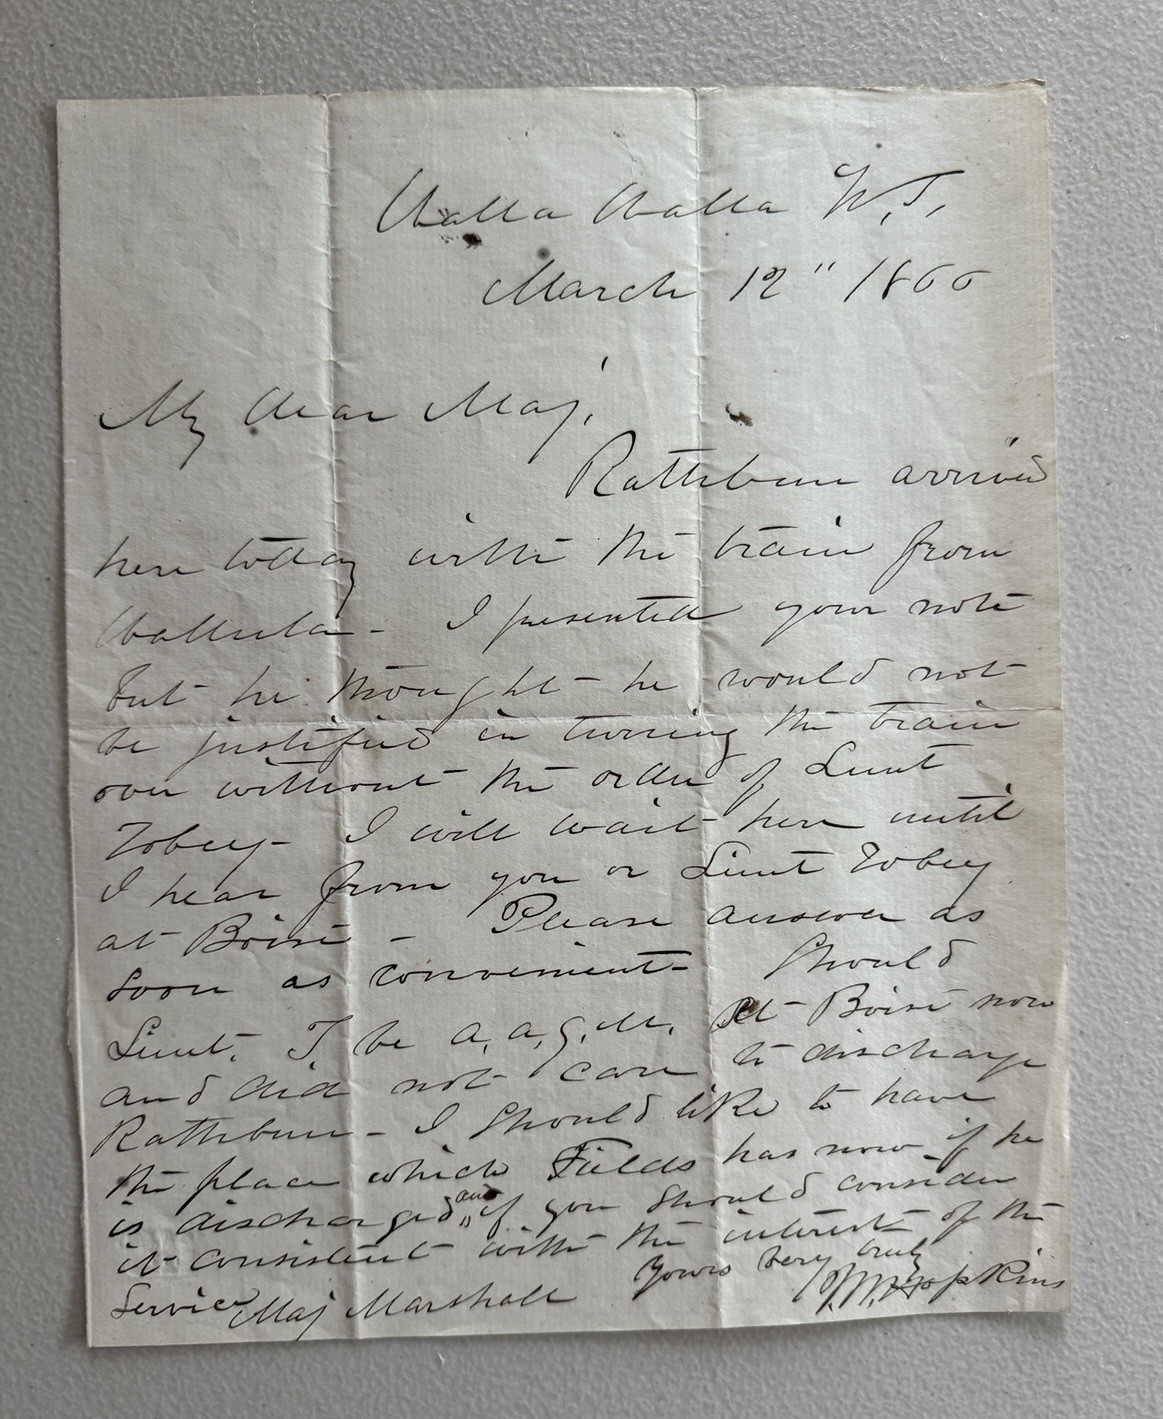 Walla Walla W.T.
March 12" 1866
My Dear Maj,
Rathbun arrived
here today with the train from
Wallula - I presented your note
but he thought he would not
be justified in turning the train
over without the order of Lieut
Tobey - I will wait here until
I hear from you or Lieut Tobey
at Boise - Please answer as
soon as convenient - Should
Lieut. T. be A.A.Q.M. at Boise now
and did not care to discharge
Rathbun - I should like to have
the place which Fields has now if he
is discharged and if you should consider
it consistent with the interest of the
Service Yours very truly
Maj Marshall Hopkins